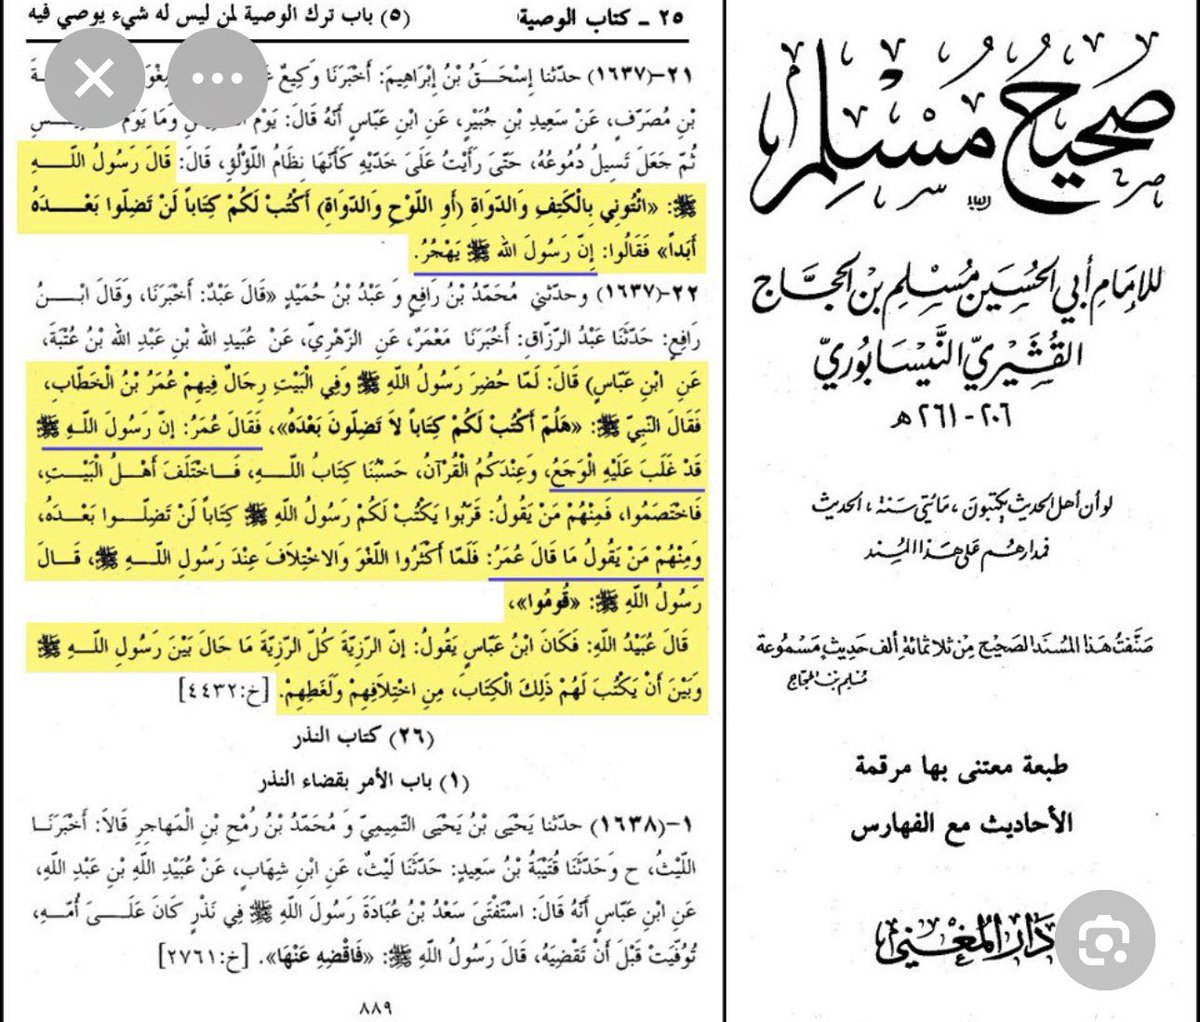 ٢٥ ـ كتاب الوصية (٥) باب ترك الوصية لمن ليس له شيء يوصي فيه
٢١-(١٦٣٧) حدّثنا إِسْحَـقُ بْنُ إِبْرَاهِيمَ: أَخْبَرَنَا وَكِيعٌ
بْنِ مُصَرِّفٍ، عَنْ سَعِيدِ بْنِ جُبَيْرٍ، عَنِ ابْنِ عَبَّاسٍ أَنَّهُ قَالَ: يَوْمُ وَمَا يَوْمُ
ثُمَّ جَعَلَ تَسِيلُ دُمُوعُهُ، حَتَّى رَأَيْتُ عَلَىَ خَدَّيْهِ كَأَنَّهَا نِظَامُ اللّؤْلُؤِ، قَالَ: قَالَ رَسُولُ اللّـــهِ
ﷺ: «ائْتُونِي بِالْكَتِفِ وَالدّوَاةِ (أَوِ اللّوْحِ وَالدّوَاةِ) أَكْتُبْ لَكُمْ كِتَاباً لَنْ تَضِلّوا بَعْـــدَهُ
أَبَداً» فَقَالُوا: إِنّ رَسُولَ الله ﷺ يَهْجُرُ.
٢٢-(١٦٣٧) وحدّثني مُحَمّدُ بْنُ رَافِعٍ وَ عَبْدُ بْنُ حُمَيْدٍ «قَالَ عَبْدٌ: أَخْبَرَنَا، وَقَالَ ابْـــنُ
رَافِعٍ: حَدّثَنَا عَبْدُ الرّزّاقِ: أَخْبَرَنَا مَعْمَرٌ، عَنِ الزّهْرِيّ، عَنْ عُبَيدِ الله بْنِ عَبْدِ الله بْنِ عُتْبَةَ،
عَنِ ابْنِ عَبّاسٍ) قَالَ: لَمّا حُضِرَ رَسُولُ اللّهِ ﷺ وَفِي الْبَيْتِ رِجَالٌ فِيهِمْ عُمَرُ بْنُ الْخَطّابِ،
فَقَالَ النّبِيّ ﷺ: «هَلُمّ أَكْتُبْ لَكُمْ كِتَاباً لاَ تَضِلّونَ بَعْدَهُ»، فَقَالَ عُمَرُ: إِنّ رَسُولَ اللّـهِ ﷺ
قَدْ غَلَبَ عَلَيْهِ الْوَجَعُ، وَعِنْدَكُمُ الْقُرْآنُ، حَسْبُنَا كِتَابُ اللّـــهِ، فَـاخْتَلَفَ أَهْـلُ الْبَيْـتِ،
فَاخْتَصَمُوا، فَمِنْهُمْ مَنْ يَقُولُ: قَرّبُوا يَكْتُبْ لَكُمْ رَسُولُ اللّهِ ﷺ كِتَاباً لَنْ تَضِلّـــوا بَعْـدَهُ،
وَمِنْهُمْ مَنْ يَقُولُ مَا قَالَ عُمَرُ: فَلَمّا أَكْثَرُوا اللّغْوَ وَالاخْتِلاَفَ عِنْدَ رَسُولِ اللّـــهِ ﷺ، قَـــالَ
رَسُولُ اللّهِ ﷺ: «قُومُوا»،
قَالَ عُبَيْدُ اللّهِ: فَكَانَ ابْنُ عَبّاسٍ يَقُولُ: إِنّ الرّزِيّةَ كُلّ الرّزِيّةَ مَا حَالَ بَيْنَ رَسُولِ اللّـــهِ ﷺ
وَبَيْنَ أَنْ يَكْتُبَ لَهُمْ ذَلِكَ الْكِتَابَ، مِنِ اخْتِلاَفِهِمْ وَلَغَطِهِمْ. [خ:٤٤٣٢]
(٢٦) كتاب النذر
(١) باب الأمر بقضاء النذر
١-(١٦٣٨) حدّثنا يَحْيَىَ بْنُ يَحْيَىَ التّمِيمِيّ وَ مُحَمّدُ بْنُ رُمْحِ بْنِ الْمَهاجِرِ قَالاَ: أَخْبَرَنَـا
اللّيْثُ، ح وَحَدّثَنَا قُتَيْبَةُ بْنُ سَعِيدٍ: حَدّثَنَا لَيْثٌ، عَنِ ابْنِ شِهَابٍ، عَنْ عُبَيْدِ اللّهِ بْنِ عَبْدِ اللّهِ،
عَنِ ابْنِ عَبّاسٍ أَنّهُ قَالَ: اسْتَفْتَىَ سَعْدُ بْنُ عُبَادَةَ رَسُولَ اللّهِ ﷺ فِي نَذْرٍ كَانَ عَلَـــىَ أُمّــهِ،
تُوُفّيَتْ قَبْلَ أَنْ تَقْضِيَهُ، قَالَ رَسُولُ اللّهِ ﷺ: «فَاقْضِهِ عَنْهَا». [خ:٢٧٦١]
٨٨٩
صَحِيحُ مُسْلِم
لِلإِمَامِ أَبِي الحُسَيْنِ مُسْلِمِ بْنِ الحَجَّاجِ
القُشَيْرِيّ النَّيْسَابُورِيّ
٢٠٦-٢٦١هـ
لو أن أهل الحديث يكتبون، مائتي سنة، الحديث
فمدارهم على هذا المسند
صَنَّفتُ هَذا المُسنَد الصَحيح مِنْ ثلاثمائة ألف حَديثٍ مَسمُوعة
مُسْلِم بن الحجاج
طبعة معتنى بها مرقمة
الأحاديث مع الفهارس
دَارُ المُغْنِي